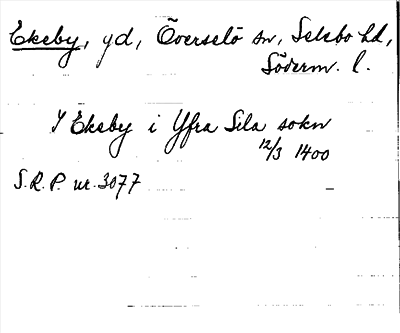 Ekeby, gd, Överselö sn, Selebo hd,
Söderm. l.
I Ekeby i Yfra Sila sokn
12/3 1400
S.R.P. nr. 3077